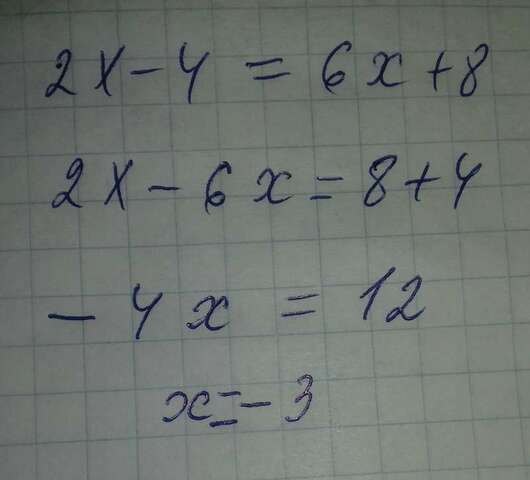 2x-4=6x+8
2x-6x=8+4
-4x=12
x=-3